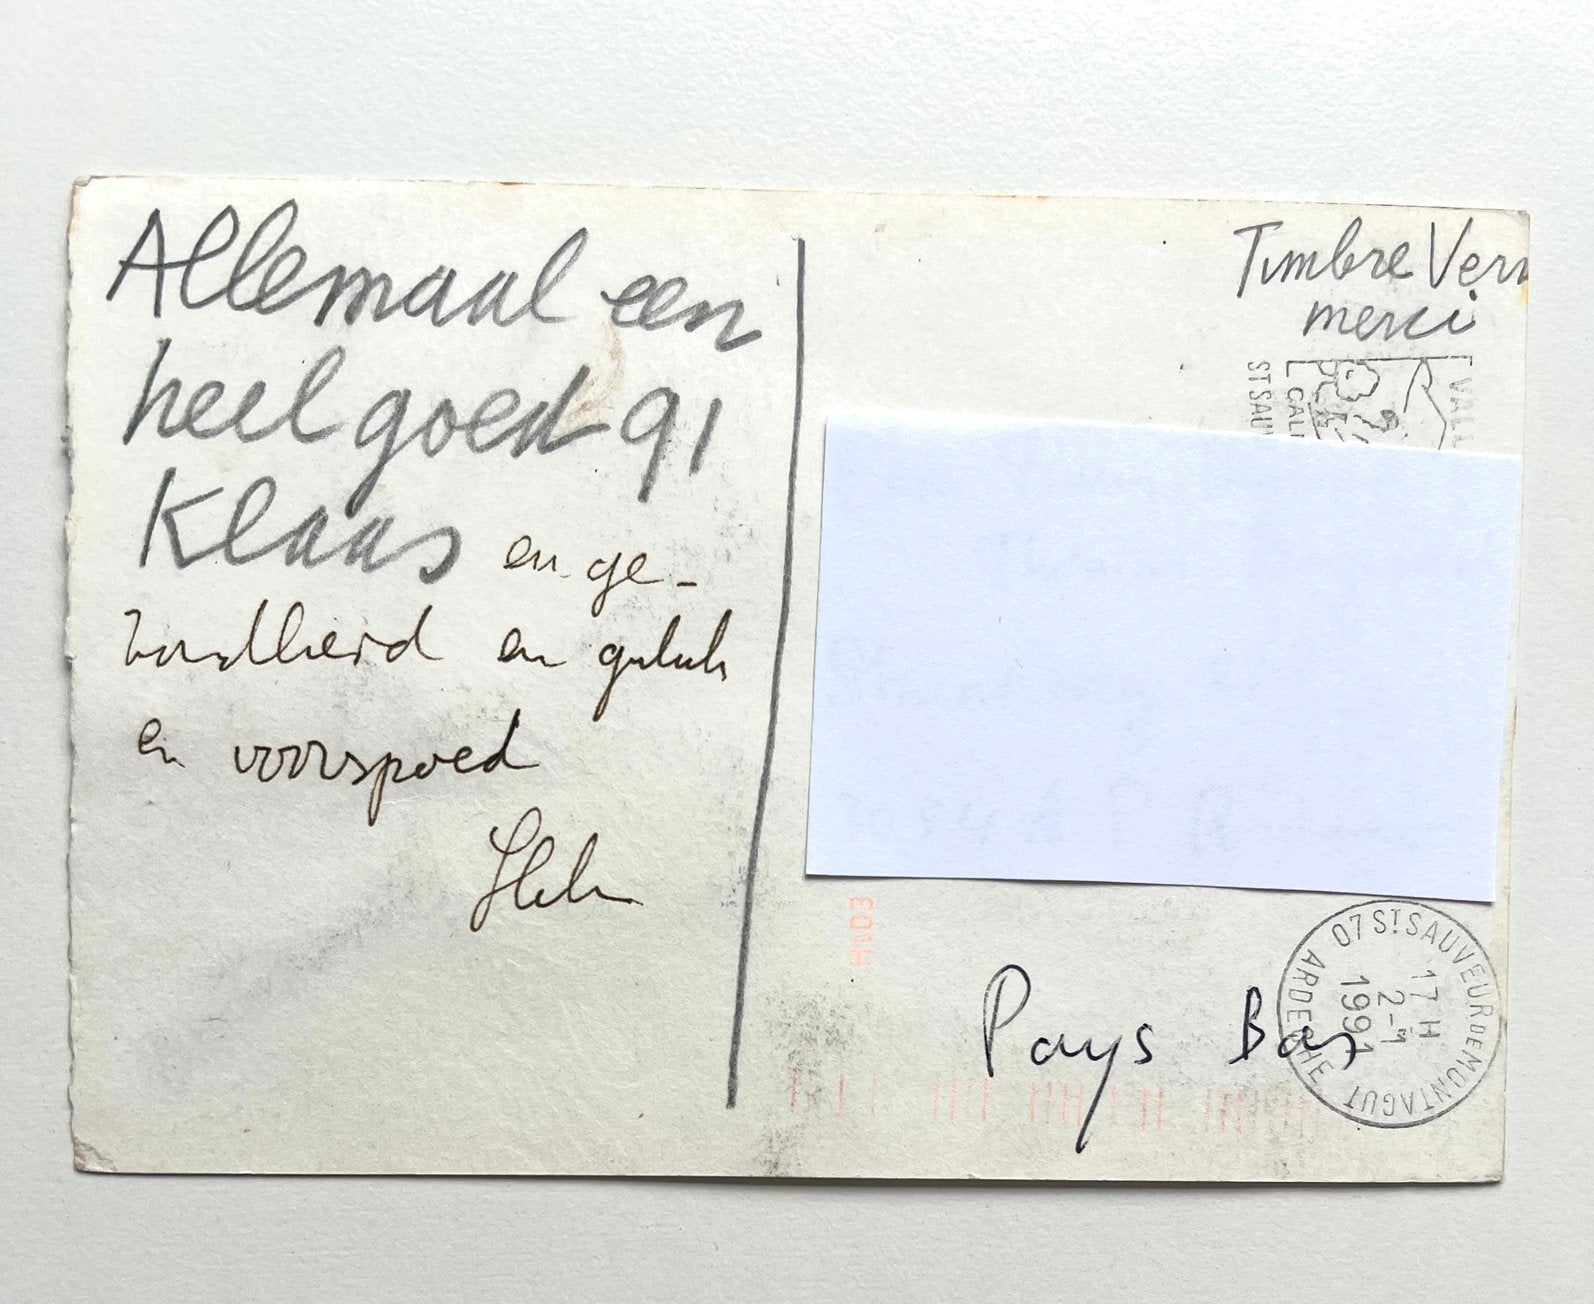 Allemaal een
heel goed 91
Klaas en ge-
zondheid en geluk
en voorspoed
Timbre Vern
merci
VALL
CALI
ST SAUV
Pays Bas
07 ST SAUVEUR DE MONTAGUT
17 H
2-1
1991
ARDECHE